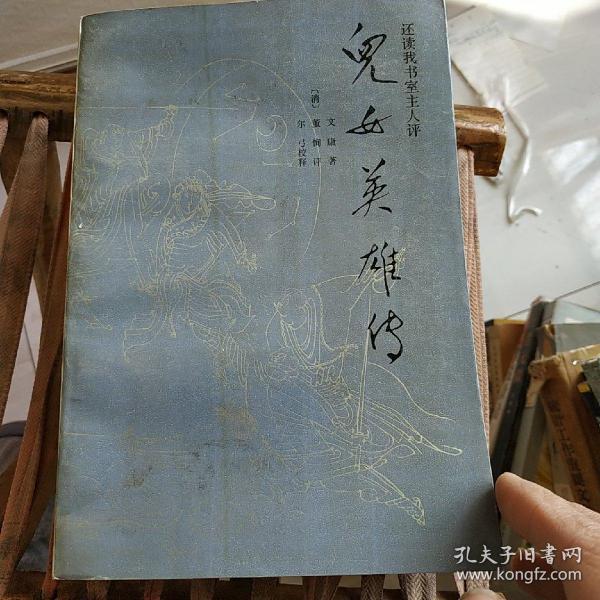 还读我书室主人评
兒女英雄传
〔清〕
文康 著
董恂 评
尔弓 校释
孔夫子旧书网
www.kongfz.com